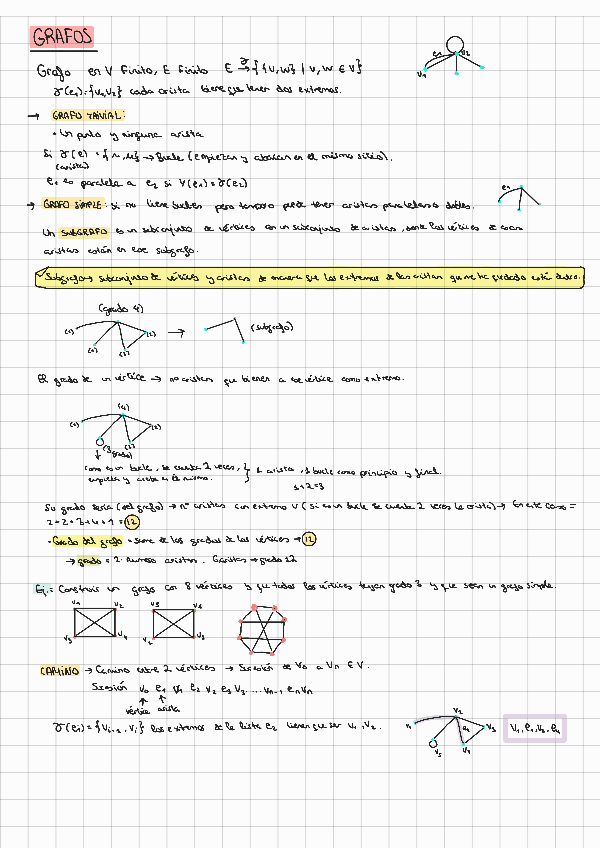 GRAFOS
Grafo en V finito, E finito E →γ {{v,w} | v, w ∈ V}
γ(e₁) = {v₁,v₂} cada arista tiene que tener dos extremos.
e₁ v₂
v₁
→ GRAFO TRIVIAL:
• Un punto y ninguna arista
Si γ(e) = → Bucle (empiezan y acaban en el mismo sitio).
(arista)
e₁ es paralela a e₂ si γ(e₁) = γ(e₂)
→ GRAFO SIMPLE: si no tiene bucles pero tampoco puede tener aristas paralelas o dobles.
e₁
Un SUBGRAFO es un subconjunto de vértices en un subconjunto de aristas, donde los vértices de esas
aristas están en ese subgrafo.
Subgrafo → subconjunto de vértices y aristas de manera que los extremos de las aristas que me he quedado esté dentro.
(grado 4)
(1) (2) → (subgrafo)
(1) (2)
El grado de un vértice → nº aristas que tienen a ese vértice como extremo.
(4)
(1) (2)
(3 grado) (2)
Como es un bucle, se cuenta 2 veces, } 1 arista, 1 bucle como principio y final.
empieza y acaba en el mismo.
1+2=3
Su grado sería (del grafo) → nº aristas con extremo V (si es un bucle se cuenta 2 veces la arista) → En este caso =
2+2+3+4+1 = 12
• Grado del grafo = suma de los grados de los vértices → 12
→ grado = 2 · número aristas. 6 aristas → grado 12
Ej: Construir un grafo con 8 vértices y que todos los vértices tengan grado 3 y que sean un grafo simple.
v₁ v₂ v₅ v₆
v₃ v₄ v₇ v₈
CAMINO → Camino entre 2 vértices → Sucesión de v₀ a vₙ ∈ V.
Sucesión v₀ e₁ v₁ e₂ v₂ e₃ v₃ ... vₙ₋₁, eₙ vₙ
vértice arista
γ(eᵢ) = {vᵢ₋₁, vᵢ} los extremos de la lista e₂ tienen que ser v₁, v₂.
v₂
v₁ e₄ v₃
v₅ v₄
v₁, e₁, v₂, e₄